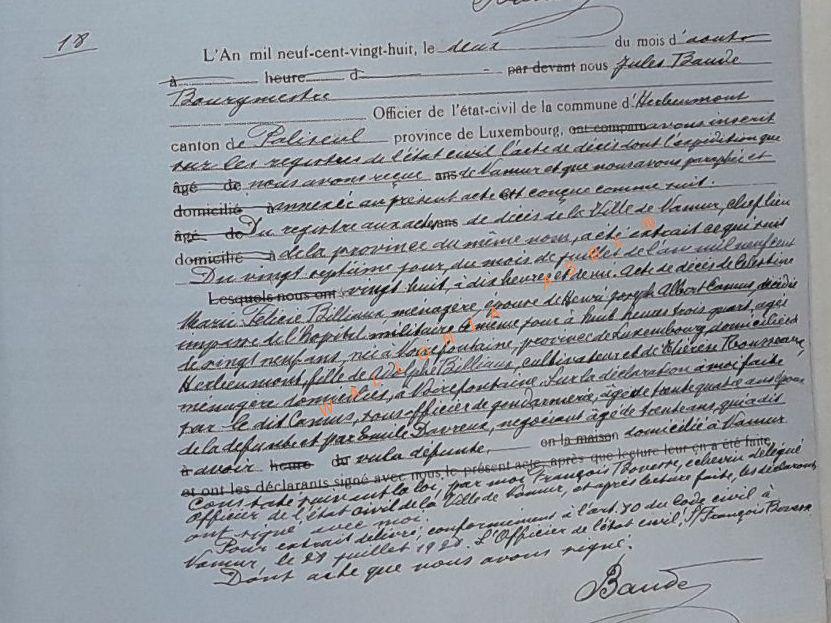 18
L'An mil neuf-cent-vingt-huit, le deux du mois d'août
à heure d par devant nous Jules Baude
Bourgmestre
Officier de l'état-civil de la commune d'Herbeumont
canton de Paliseul province de Luxembourg, ont comparu avons inscrit
sur les registres de l'état civil l'acte de décès dont l'expédition que
âgé de nous avons reçue ans de Namur et que nous avons paraphée et
domicilié à annexée au présent acte est conçue comme suit.
âgé de Du registre aux actes ans de décès de la Ville de Namur, chef lieu
domicilié à de la province du même nom, a été extrait ce qui suit
Du vingt septième jour, du mois de juillet de l'an mil neuf cent
Lesquels nous ont vingt huit, à dix heures et demi. Acte de décès de Célestine
Marie Félicie Billiaux, ménagère, épouse de Henri Joseph Albert Camus, décédée
impasse de l'hôpital militaire ce même jour à huit heures trois quart, agée
de vingt neuf ans, née à Voirefontaine, province de Luxembourg, domiciliée à
Herbeumont, fille de Adolphe Billiaux, cultivateur et de Thérèse Rousseaux,
ménagère domiciliés, à Voirefontaine. Sur la déclaration à moi faite
par le dit Camus, sous officier de gendarmerie, âgé de trente quatre ans époux
de la défunte et par Emile Davreux, négociant âgé de trente ans, qui a dit
à avoir heure du vu la défunte, on la maison domicilié à Namur
et ont les déclarants signé avec nous, le présent acte, après que lecture leur en a été faite,
Constaté suivant la loi par moi François Bovesse, échevin délégué
Officier de l'état civil de la Ville de Namur, et après lecture faite, les déclarants
ont signé avec moi.
Pour extrait délivré, conformément à l'art. 80 du Code civil à
Namur, le 28 juillet 1928. L'Officier de l'état civil, S/ François Bovesse
Dont acte que nous avons signé.
Baude
WALLONIA ASBL